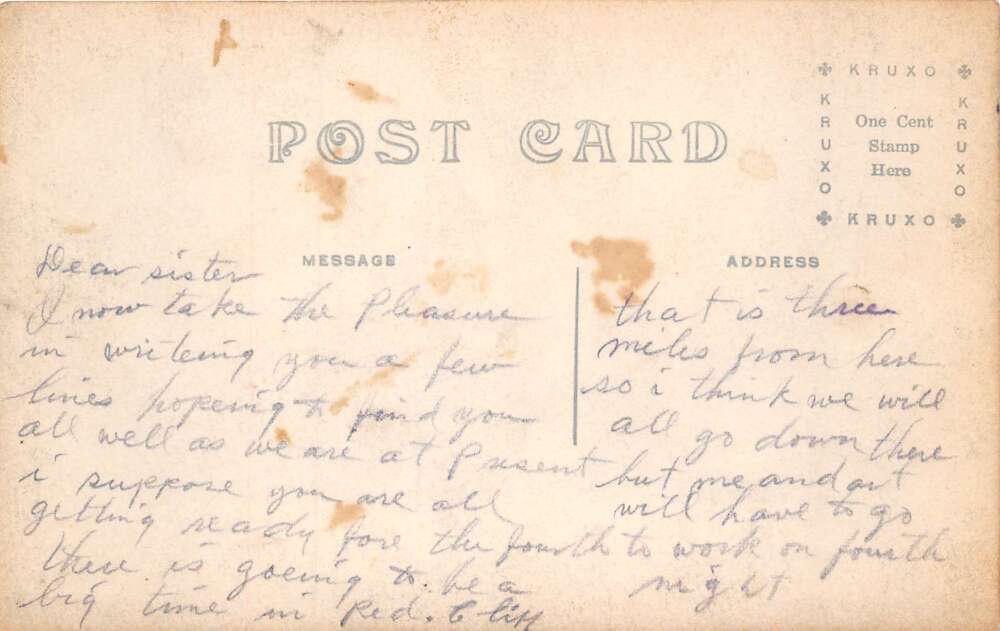 POST CARD
KRUXO
KRUXO
KRUXO
KRUXO
One Cent
Stamp
Here
MESSAGE
ADDRESS
Dear sister
I now take the Pleasure
in writeing you a few
lines hopeing to find you
all well as we are at Present
i suppose you are all
getting ready fore the fourth
there is goeing to be a
big time in Red. Cliff
that is three
miles from here
so i think we will
all go down there
but me and art
will have to go
to work on fourth
night